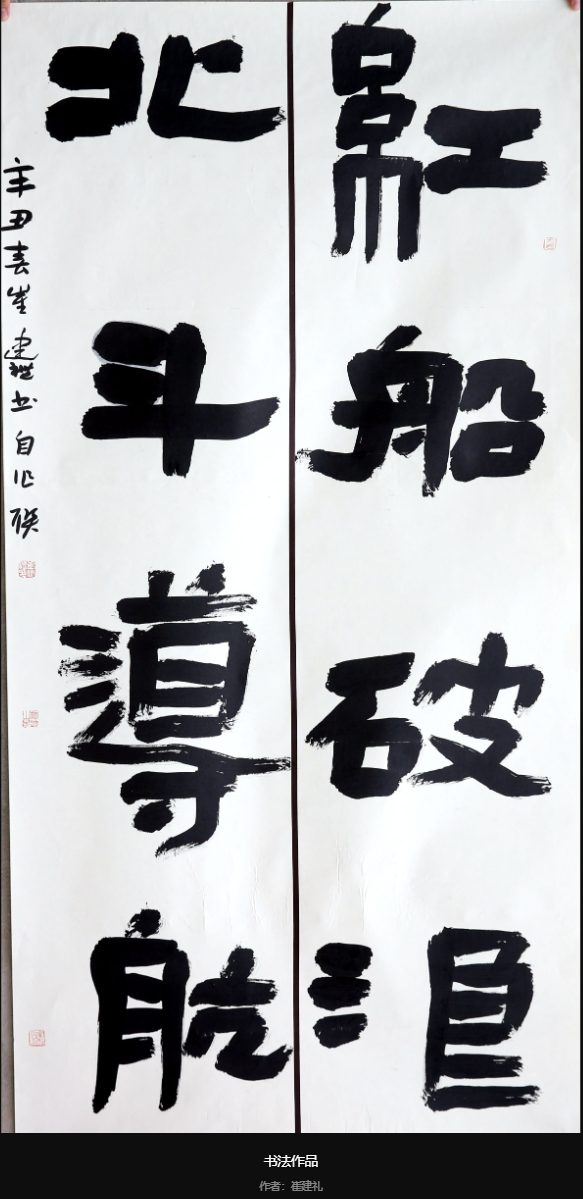 紅船破浪
北斗導航
辛丑春崔建礼书自作联
书法作品
作者：崔建礼